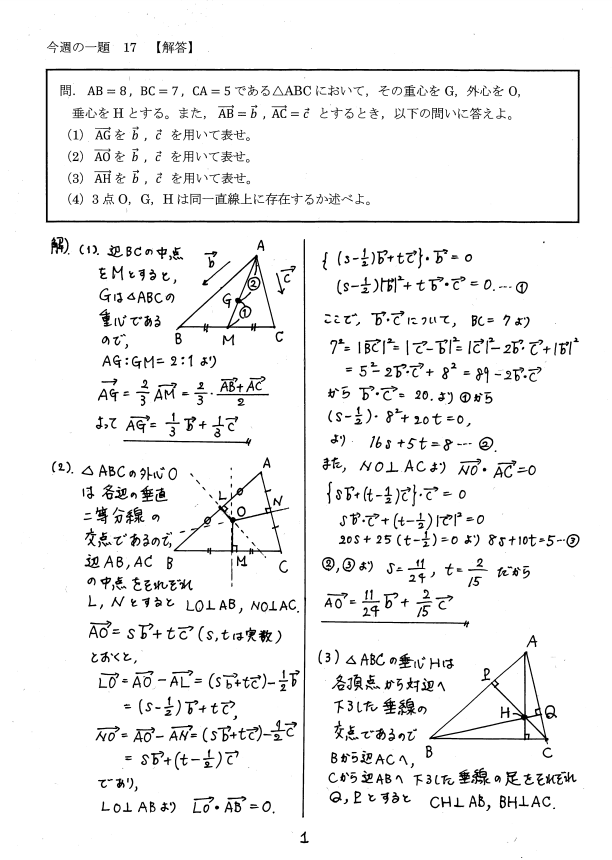 今週の一題 17 【解答】
問. AB=8, BC=7, CA=5 である△ABC において, その重心を G, 外心を O,
垂心を H とする。また, $\overrightarrow{AB}=\vec{b}$, $\overrightarrow{AC}=\vec{c}$ とするとき, 以下の問いに答えよ。
(1) $\overrightarrow{AG}$ を $\vec{b}$, $\vec{c}$ を用いて表せ。
(2) $\overrightarrow{AO}$ を $\vec{b}$, $\vec{c}$ を用いて表せ。
(3) $\overrightarrow{AH}$ を $\vec{b}$, $\vec{c}$ を用いて表せ。
(4) 3 点 O, G, H は同一直線上に存在するか述べよ。
解). (1). 辺BCの中点
をMとすると,
Gは△ABCの
重心である
ので,
AG:GM=2:1 より
$\overrightarrow{AG}=\frac{2}{3}\overrightarrow{AM}=\frac{2}{3}\cdot\frac{\overrightarrow{AB}+\overrightarrow{AC}}{2}$
よって $\overrightarrow{AG}=\frac{1}{3}\vec{b}+\frac{1}{3}\vec{c}$
A
$\vec{b}$
②
$\vec{c}$
G
①
B M C
(2). △ABCの外心O
は各辺の垂直
二等分線の
交点であるので,
辺AB, AC
の中点をそれぞれ
L, Nとすると LO⊥AB, NO⊥AC.
A
L
O
N
B M C
$\overrightarrow{AO}=s\vec{b}+t\vec{c}$ (s,tは実数)
とおくと,
$\overrightarrow{LO}=\overrightarrow{AO}-\overrightarrow{AL}=(s\vec{b}+t\vec{c})-\frac{1}{2}\vec{b}$
$=(s-\frac{1}{2})\vec{b}+t\vec{c}$,
$\overrightarrow{NO}=\overrightarrow{AO}-\overrightarrow{AN}=(s\vec{b}+t\vec{c})-\frac{1}{2}\vec{c}$
$=s\vec{b}+(t-\frac{1}{2})\vec{c}$
であり,
LO⊥AB より $\overrightarrow{LO}\cdot\overrightarrow{AB}=0$.
$\{(s-\frac{1}{2})\vec{b}+t\vec{c}\}\cdot\vec{b}=0$
$(s-\frac{1}{2})|\vec{b}|^2+t\vec{b}\cdot\vec{c}=0$. …①
ここで, $\vec{b}\cdot\vec{c}$ について, BC=7 より
$7^2=|\overrightarrow{BC}|^2=|\vec{c}-\vec{b}|^2=|\vec{c}|^2-2\vec{b}\cdot\vec{c}+|\vec{b}|^2$
$=5^2-2\vec{b}\cdot\vec{c}+8^2=89-2\vec{b}\cdot\vec{c}$
から $\vec{b}\cdot\vec{c}=20$. より ①から
$(s-\frac{1}{2})\cdot 8^2+20t=0$,
より 16s+5t=8 … ②.
また, NO⊥AC より $\overrightarrow{NO}\cdot\overrightarrow{AC}=0$
$\{s\vec{b}+(t-\frac{1}{2})\vec{c}\}\cdot\vec{c}=0$
$s\vec{b}\cdot\vec{c}+(t-\frac{1}{2})|\vec{c}|^2=0$
$20s+25(t-\frac{1}{2})=0$ より 8s+10t=5…③
②,③より $s=\frac{11}{24}$, $t=\frac{2}{15}$ だから
$\overrightarrow{AO}=\frac{11}{24}\vec{b}+\frac{2}{15}\vec{c}$
(3) △ABCの垂心Hは
各頂点から対辺へ
下ろした垂線の
交点であるので
Bから辺ACへ,
Cから辺ABへ 下ろした垂線の足をそれぞれ
Q, Pとすると CH⊥AB, BH⊥AC.
A
P
H
Q
B C
1